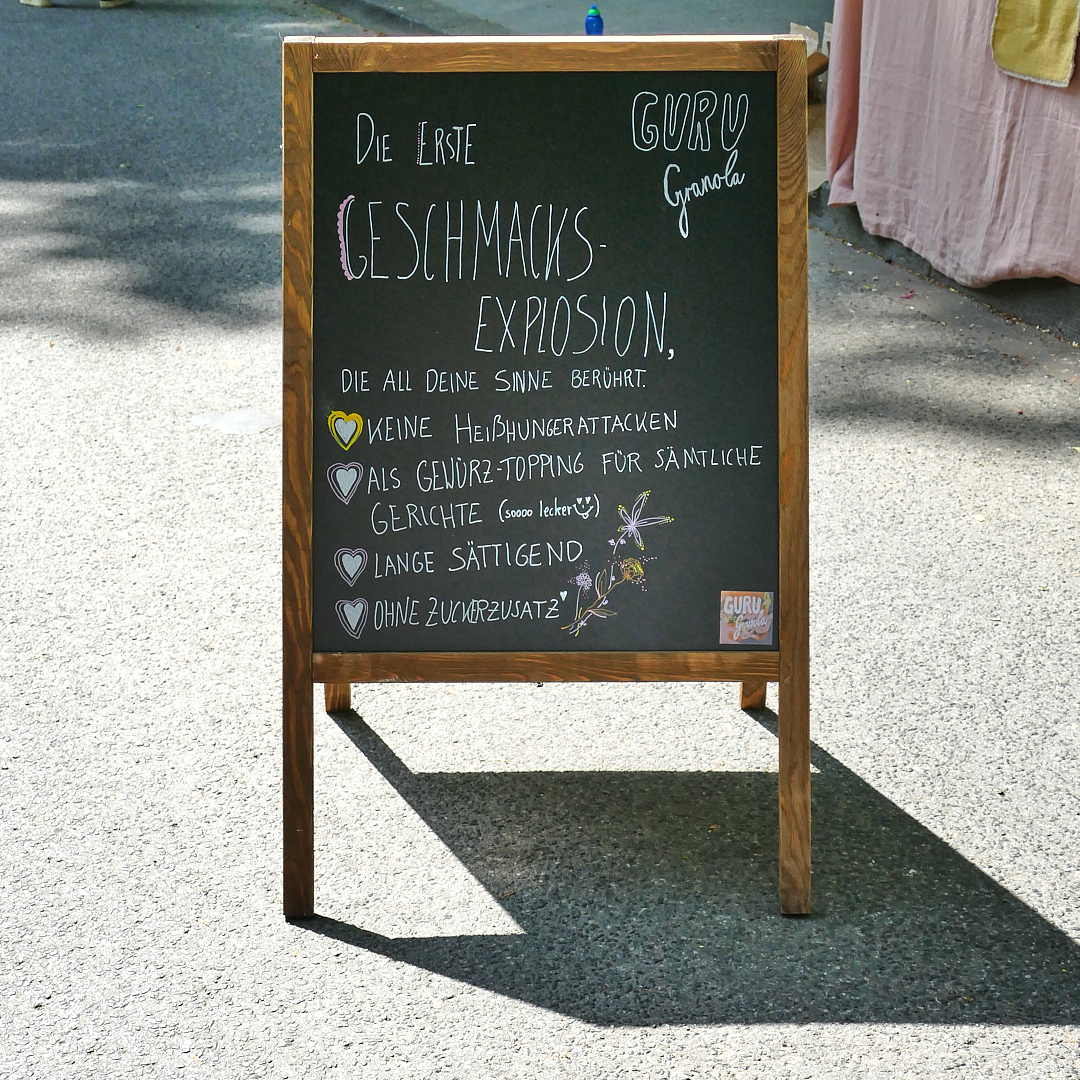 DIE ERSTE
GURU
Granola
GESCHMACKS-
EXPLOSION,
DIE ALL DEINE SINNE BERÜHRT.
KEINE HEIßHUNGERATTACKEN
ALS GEWÜRZ-TOPPING FÜR SÄMTLICHE
GERICHTE (soooo lecker)
LANGE SÄTTIGEND
OHNE ZUCKERZUSATZ
GURU
Granola